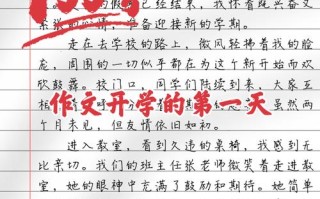 已经结束，我怀着既兴奋又
的心情，准备迎接新的学期。
走在去学校的路上，微风轻拂着我的脸
庞，周围的一切似乎都在为这个新开始而欢
欣鼓舞。校门口，同学们陆续到来，大家互
虽然两
作文开学的第一天
个月未见，但友情依旧如初。
进入教室，看到久违的桌椅，我感到无
比亲切。我们的班主任张老师微笑着走进教
室，她的眼神中充满了鼓励和期待。她简单